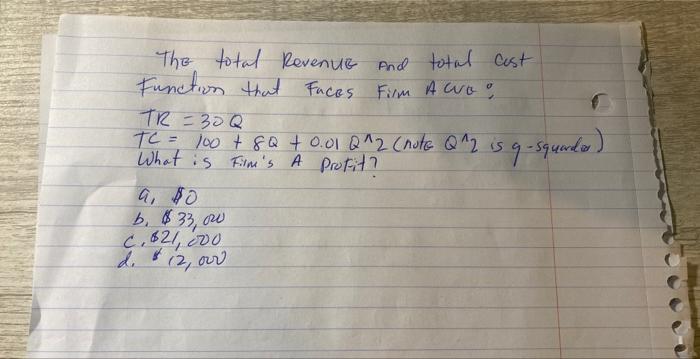 The total Revenue and total Cost
Function that Faces Firm A are:
TR = 30Q
TC = 100 + 8Q + 0.01 Q^2 (note Q^2 is q-squared)
What is Firm's A Profit?
a. $0
b. $33,000
c. $21,000
d. $12,000